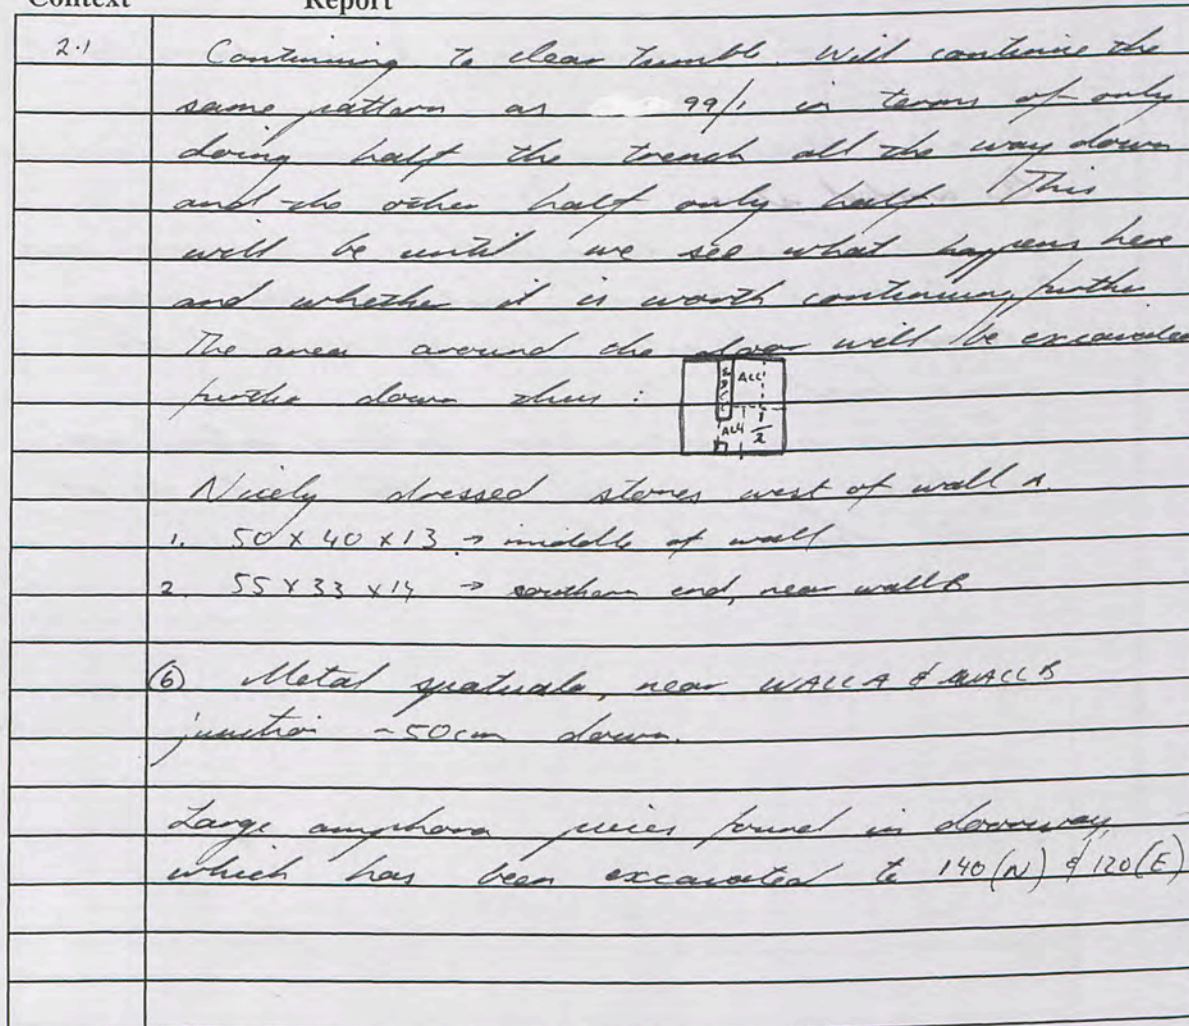 Context Report
2.1 Continuing to clear tumble. Will continue the
same pattern as 99/1 in terms of only
doing half the trench all the way down
and the other half only half. This
will be until we see what happens here
and whether it is worth continuing further
The area around the door will be excavated
further down thus :
ALL
ALL 1/2
Nicely dressed stones west of wall A.
1. 50 x 40 x 13 → middle of wall
2. 55 x 33 x 14 → southern end, near wall B
(6) Metal spatula, near WALL A & WALL B
junction ~50cm down.
Large amphora pieces found in doorway,
which has been excavated to 140(N) & 120(E)